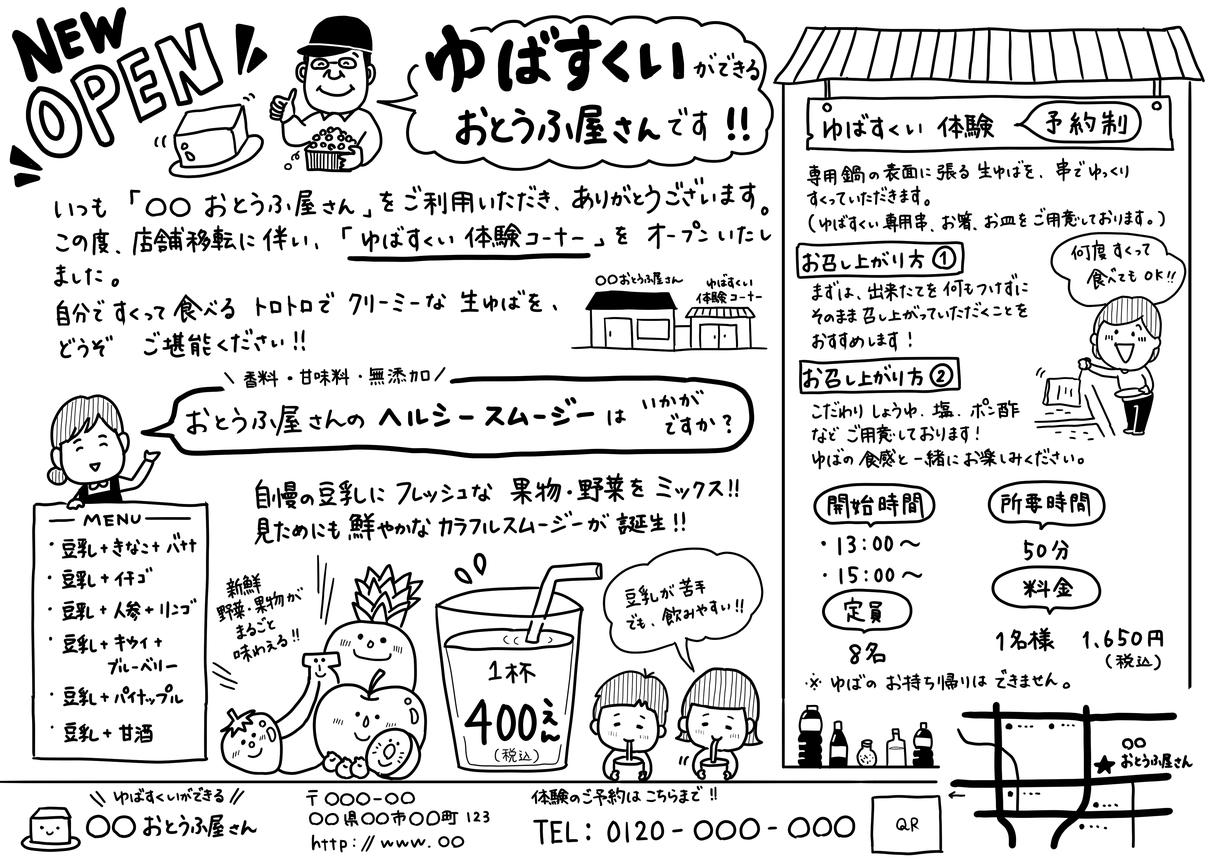 NEW
OPEN
ゆばすくい ができる
おとうふ屋さんです!!
いつも「〇〇 おとうふ屋さん」をご利用いただき、ありがとうございます。
この度、店舗移転に伴い、「ゆばすくい 体験コーナー」を オープンいたし
ました。
自分ですくって食べる トロトロで クリーミーな 生ゆばを、
どうぞ ご堪能ください!!
〇〇おとうふ屋さん
ゆばすくい
体験コーナー
\ 香料・甘味料・無添加 /
おとうふ屋さんの ヘルシースムージー は いかが
ですか?
自慢の豆乳に フレッシュな 果物・野菜を ミックス!!
見ためにも 鮮やかな カラフルスムージーが 誕生!!
MENU
・豆乳+きなこ+バナナ
・豆乳+イチゴ
・豆乳+人参+リンゴ
・豆乳+キウイ+
ブルーベリー
・豆乳+パイナップル
・豆乳+甘酒
新鮮
野菜・果物が
まるごと
味わえる!!
1杯
400えん
(税込)
豆乳が苦手
でも、飲みやすい!!
ゆばすくい 体験 予約制
専用鍋の表面に張る生ゆばを、串でゆっくり
すくっていただきます。
(ゆばすくい専用串、お箸、お皿をご用意しております。)
お召し上がり方 ①
まずは、出来たてを何もつけずに
そのまま召し上がっていただくことを
おすすめします!
何度すくって
食べても OK!!
お召し上がり方 ②
こだわりしょうゆ、塩、ポン酢
など ご用意しております!
ゆばの食感と一緒にお楽しみください。
開始時間
・13:00〜
・15:00〜
定員
8名
所要時間
50分
料金
1名様 1,650円
(税込)
※ ゆばの お持ち帰りは できません。
〇〇
おとうふ屋さん
\\ ゆばすくいができる //
〇〇おとうふ屋さん
〒〇〇〇-〇〇
〇〇県〇〇市〇〇町 123
http://www.〇〇
体験のご予約は こちらまで!!
TEL: 0120-〇〇〇-〇〇〇
QR